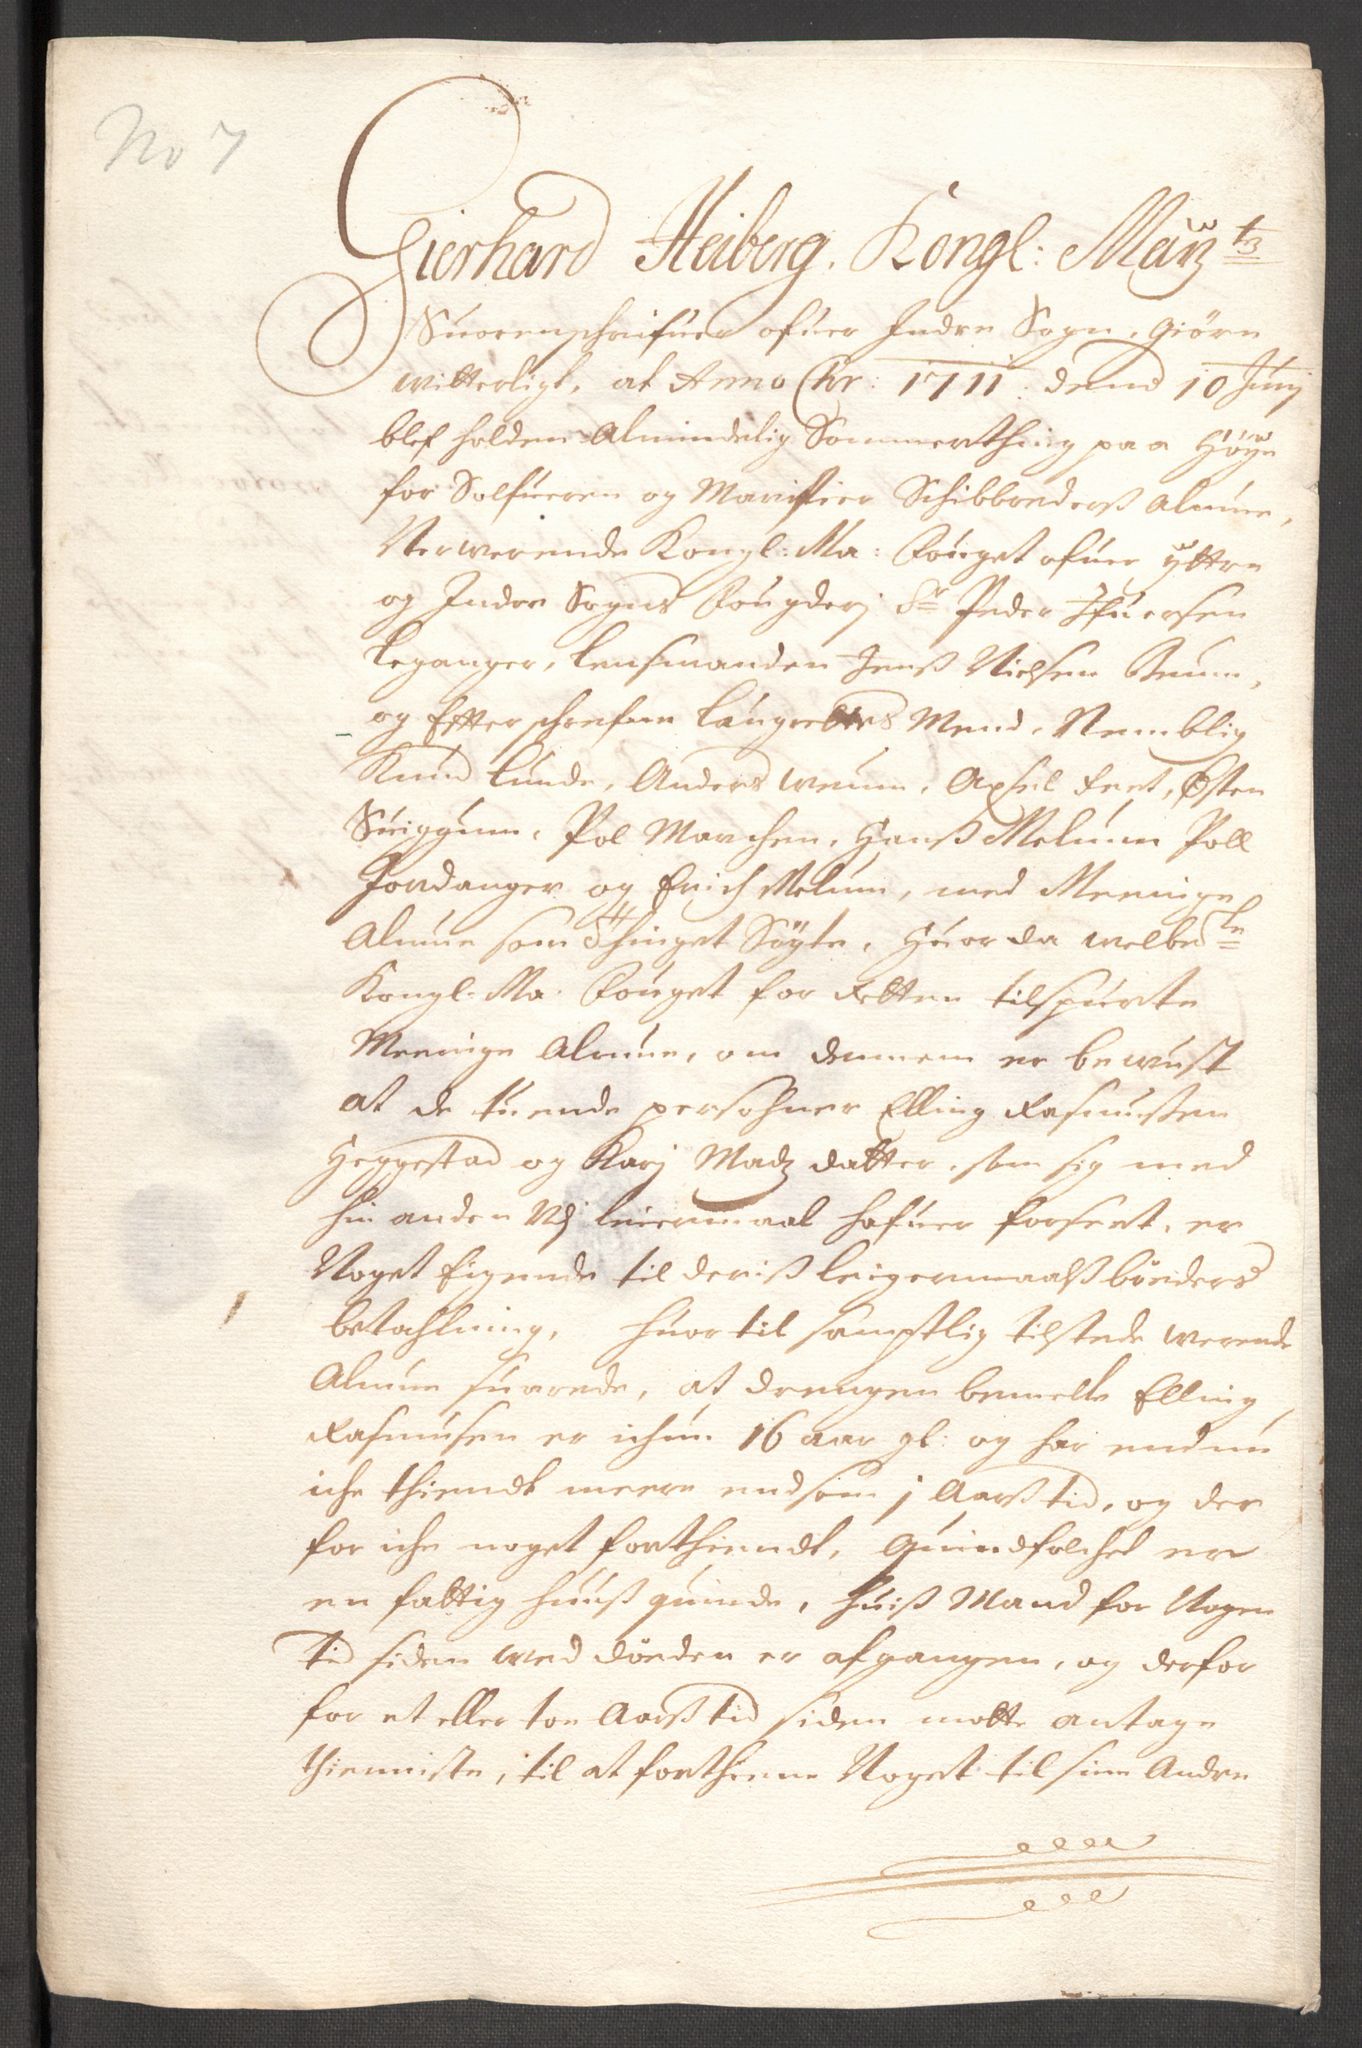 No 7
Gierhard Heiberg. Kongl: Maÿz tz
Suorenschrifuer ofuer Indre Sogn, giöre
witterligt, at Anno Chr: 1711. dend 10 Junj
blef holden Almindelig Sommerthing paa
for Solfueren og Marifier Schibbreders Almue,
Nerwerende Kongl: Ma: Fouget ofuer ÿttre
og Indre Sogns Fougderj Sr Peder Ifuersen
Leganger, Lensmanden Jenß Nielsen
og Efterschrefne Laugrettes Mend, Nemblig
Knud Lunde, Anders weum, Axsel Feet, Østen
Suiggum, Pol Marchen, Hanß Melum Poll
Jordanger og Erich Melum, med Meenige
Almue som Thinget Søgte, Huor da welbete
Kongl. Ma. Fouget for Retten tilspurte
Meenige Almue, om dennem er bewust
at de tuende persohner Elling Rasmusßen
Heggestad og Karj Madz datter, som sig med
hin anden Vdj leiermaal hafuer forseet, er
Noget Eigende til deriß leigermaalß böeders
betahlning, huortil samptlig tilstede werende
Almue suarede, at drengen bemelte Elling
Rasmusen er ichun 16 aar gl: og har endnu
iche thiendt meere end som j Aarß tid, og der
for iche noget forthiendt, Quindfolchet er
en fattig huuß quinde, huiß Mand for Nogen
tid siden wed döeden er afgangen, og derfor
for et eller toe Aarß tid siden motte antage
thienniste, til at forthienne Noget til sine Andre